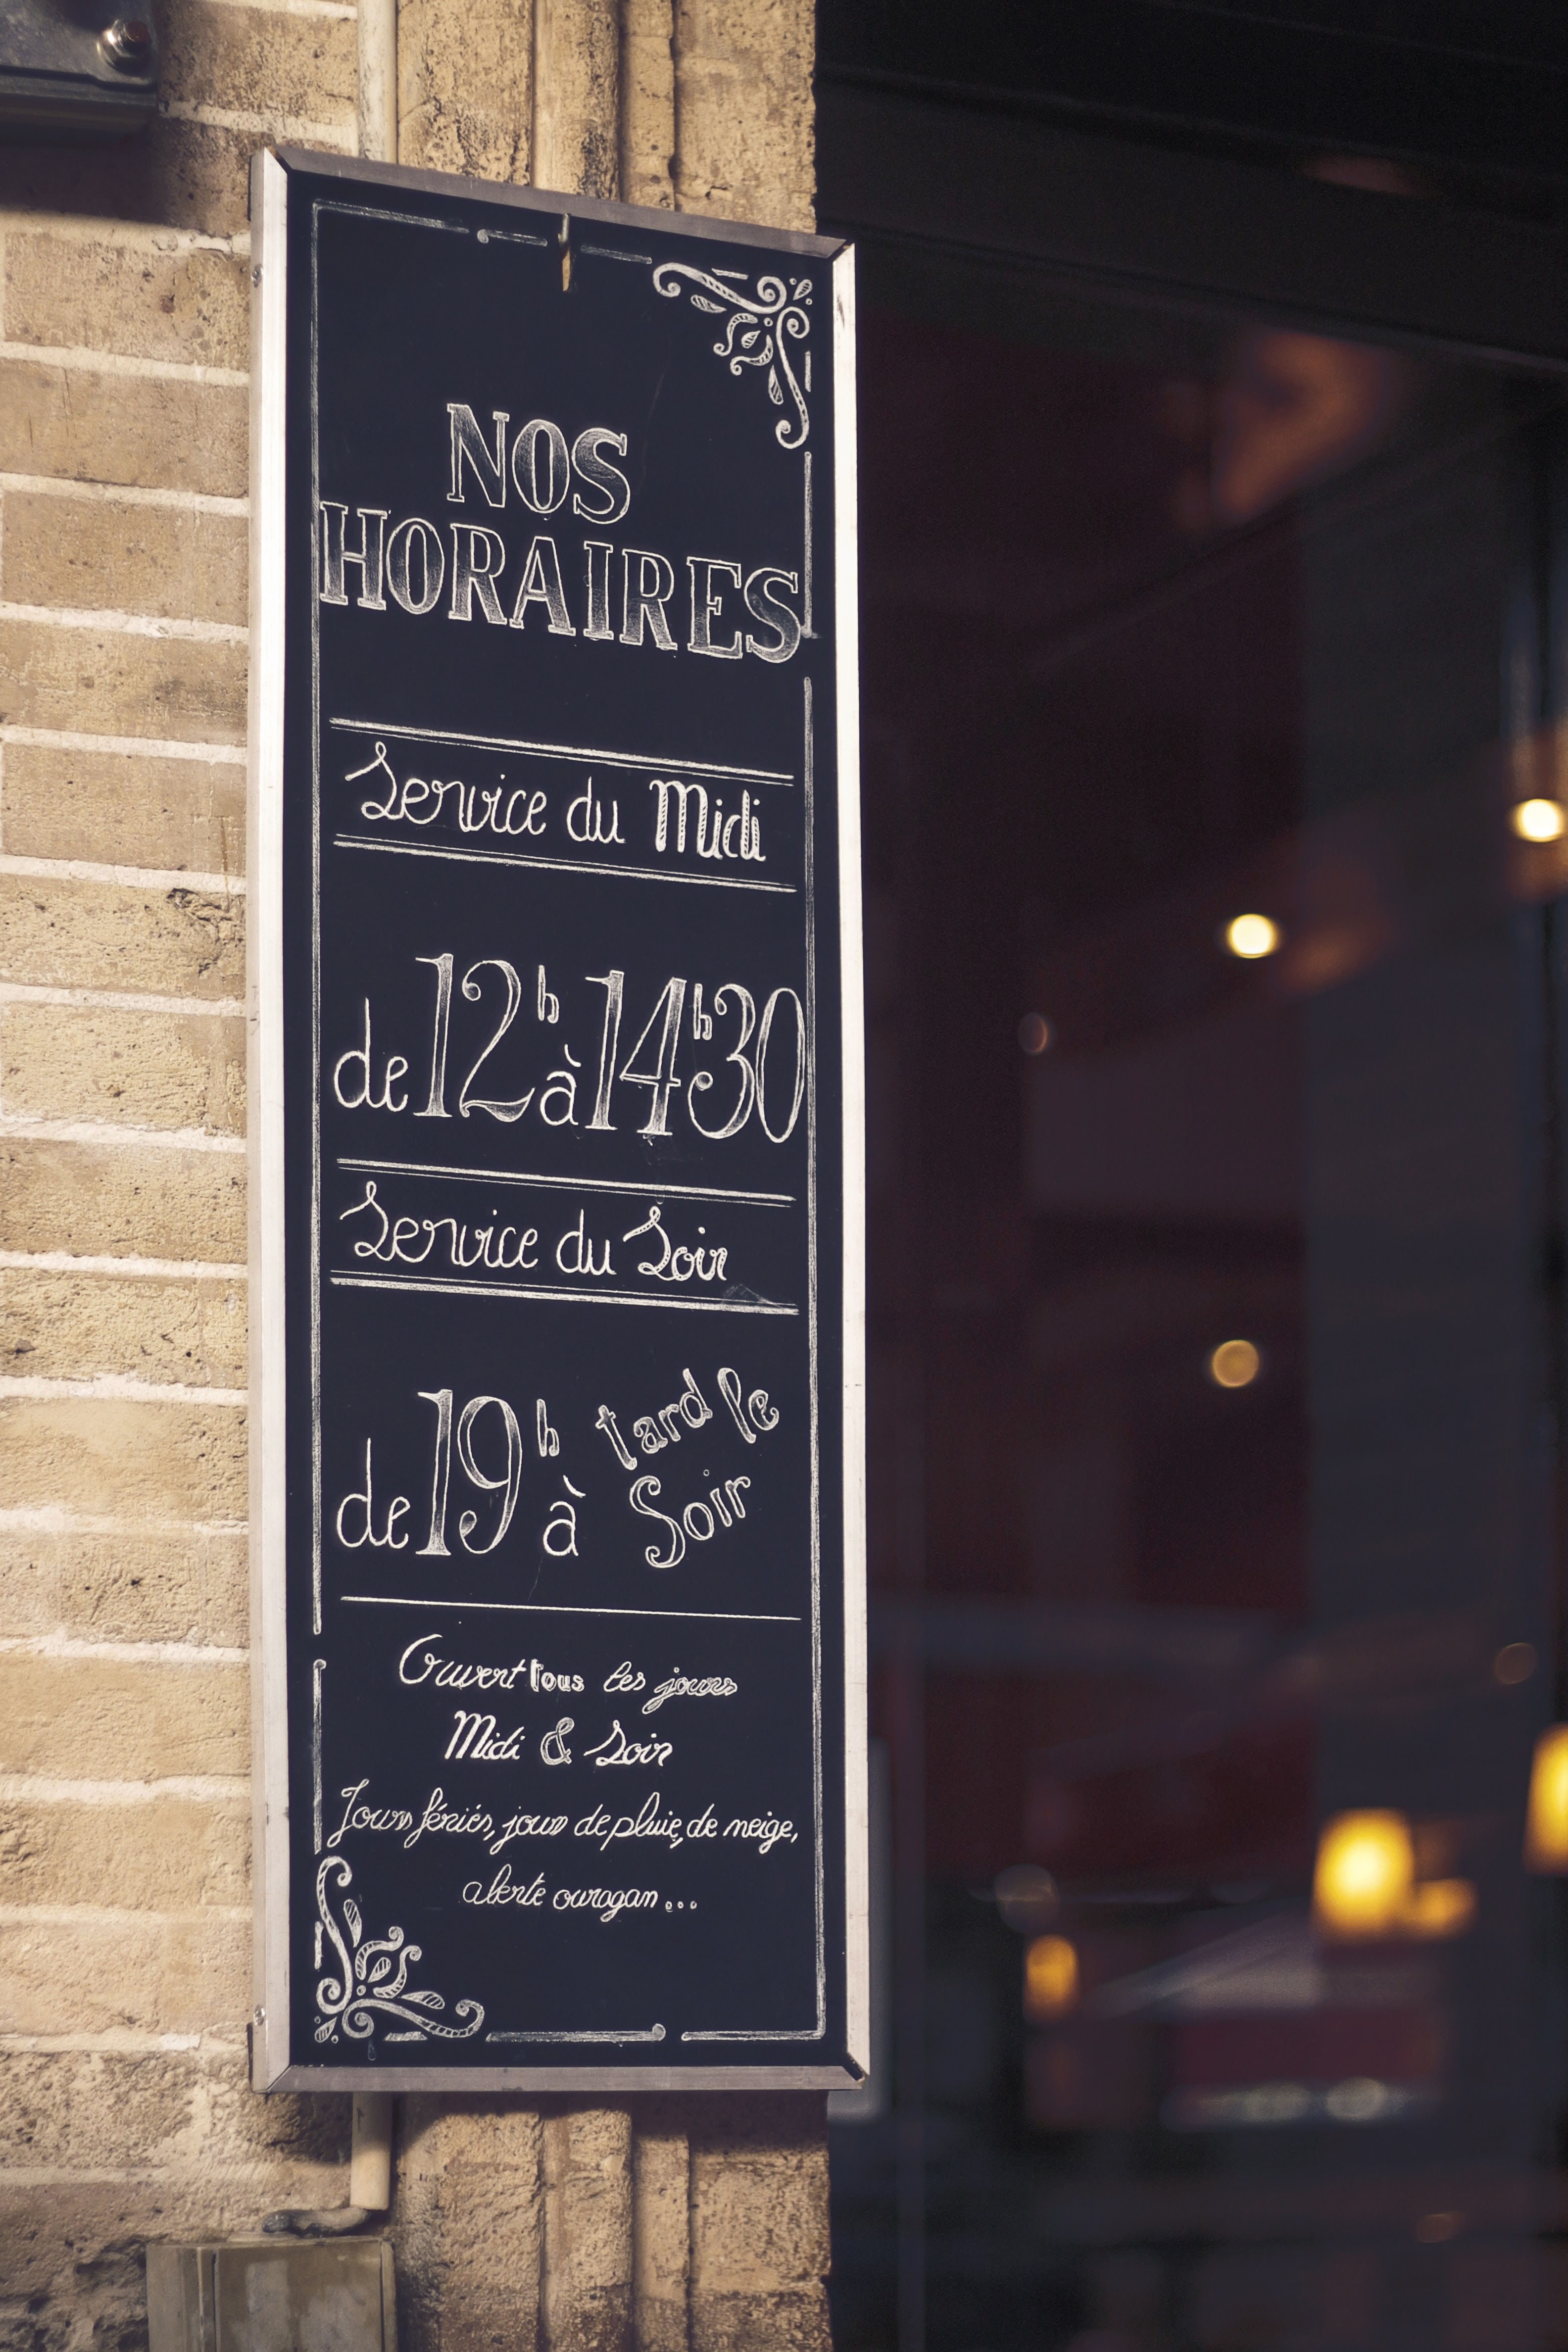 NOS
HORAIRES
Service du Midi
de 12h à 14h30
Service du Soir
de 19h à tard le
Soir
Ouvert tous les jours
Midi & Soir
Jours fériés, jours de pluie, de neige,
alerte ouragan...